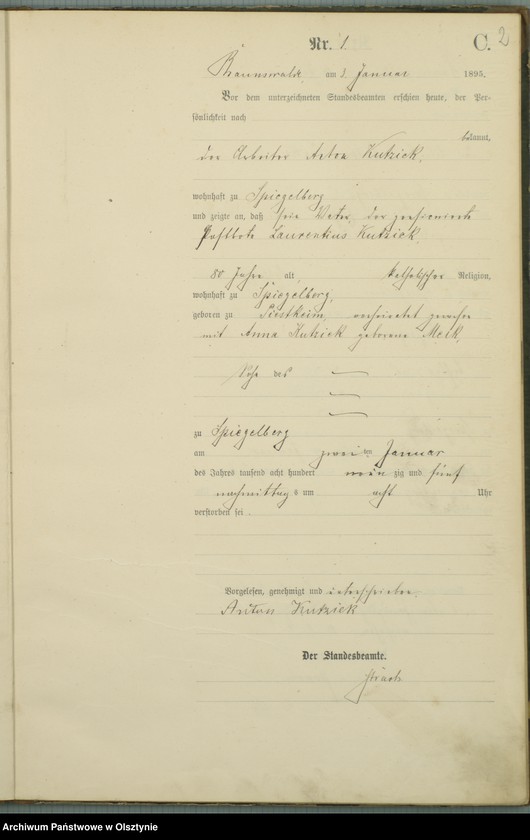 Nr. 1.
C. 2
Braunswalde, am 3. Januar 1895.
Vor dem unterzeichneten Standesbeamten erschien heute, der Per-
sönlichkeit nach
bekannt,
der Arbeiter Anton Kutzick,
wohnhaft zu Spiegelberg
und zeigte an, daß sein Vater, der pensionirte
Postbote Laurentius Kutzick,
80 Jahre alt, katholischer Religion,
wohnhaft zu Spiegelberg,
geboren zu verheiratet gewesen
mit Anna Kutzick geborene
Sohn des
zu Spiegelberg
am zweiten Januar
des Jahres tausend acht hundert neunzig und fünf
nachmittags um acht Uhr
verstorben sei
Vorgelesen, genehmigt und unterschrieben.
Anton Kutzick
Der Standesbeamte.
Archiwum Państwowe w Olsztynie